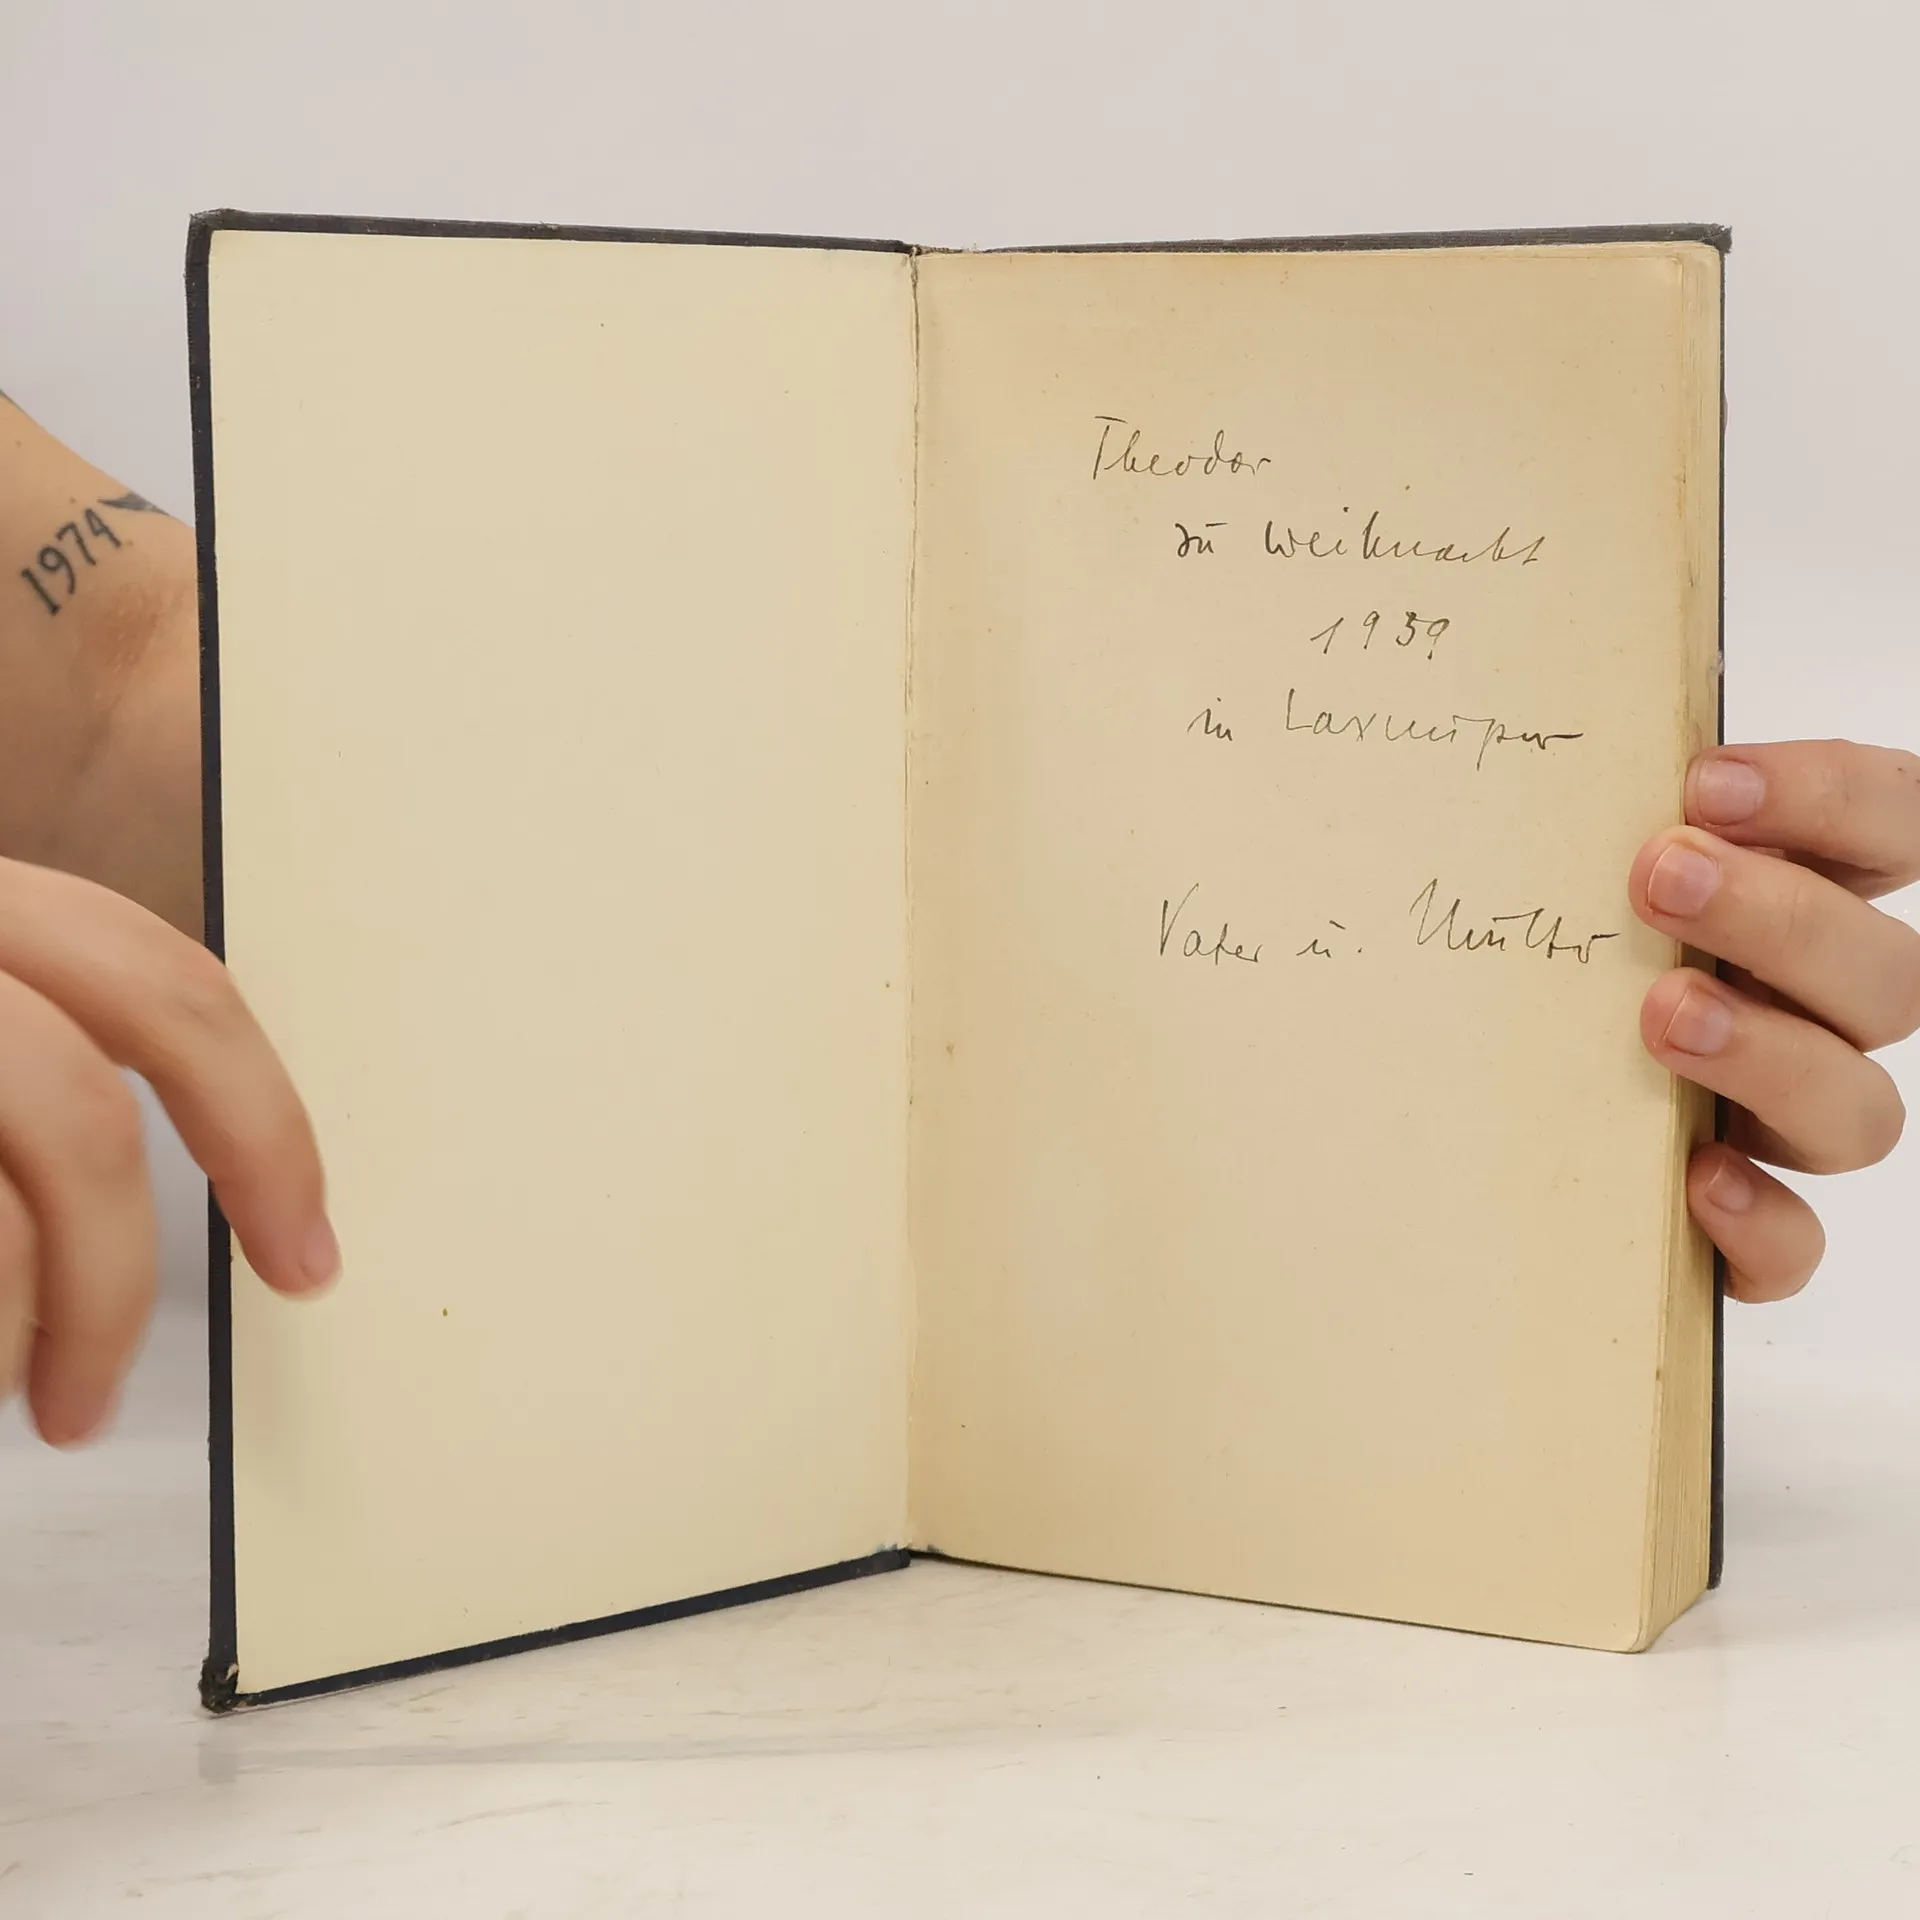 1974
Theodor
zu Weihnacht
1939
in
Vater u. Mutter